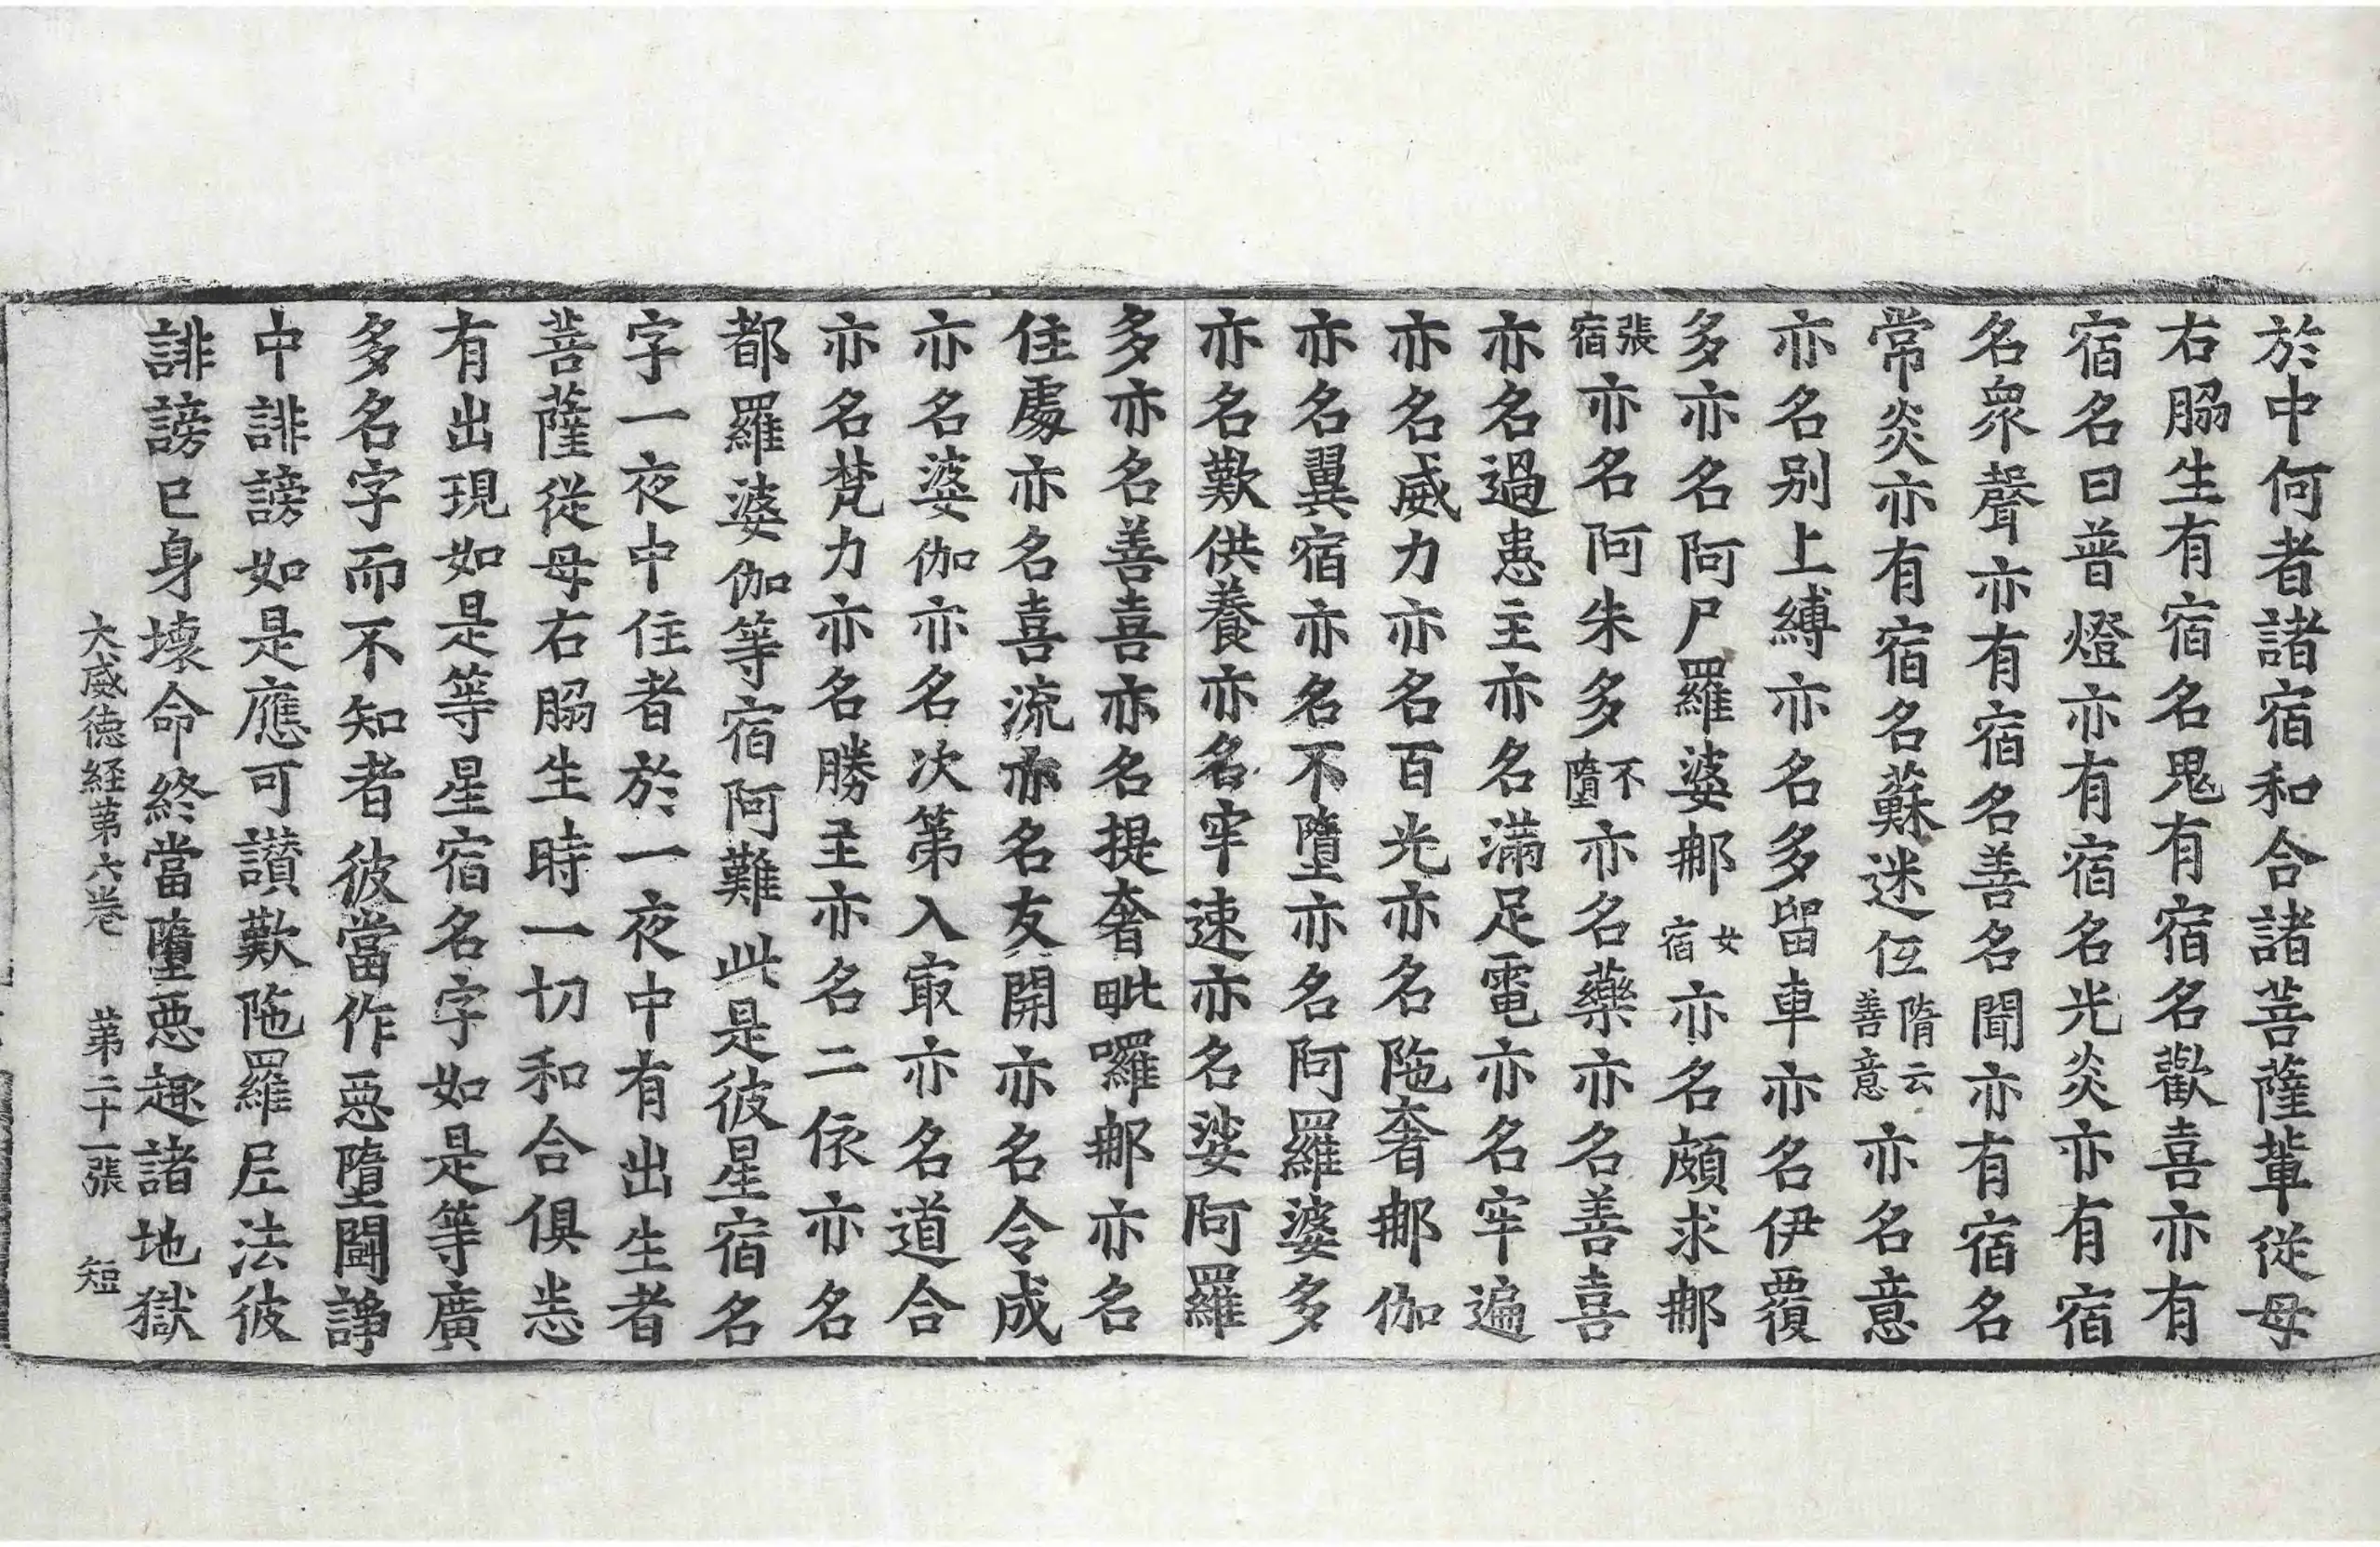 於中何者諸宿和合諸菩薩輩從母
右脇生有宿名鬼有宿名歡喜亦有
宿名曰普燈亦有宿名光炎亦有宿
名衆聲亦有宿名善名聞亦有宿名
常炎亦有宿名蘇迷伍隋云善意亦名意
亦名别上縛亦名多留車亦名伊覆
多亦名阿尸羅婆那女宿亦名頗求那
張宿亦名阿朱多不墮亦名藥亦名善喜
亦名過患主亦名滿足電亦名牢遍
亦名威力亦名百光亦名陁奢那伽
亦名翼宿亦名不墮亦名阿羅婆多
亦名歎供養亦名牢速亦名娑阿羅
多亦名善喜亦名提奢毗囉那亦名
住處亦名喜流亦名友開亦名令成
亦名婆伽亦名次第入㝡亦名道合
亦名梵力亦名勝主亦名二依亦名
都羅婆伽等宿阿難此是彼星宿名
字一夜中住者於一夜中有出生者
菩薩從母右脇生時一切和合俱恙
有出現如是等星宿名字如是等廣
多名字而不知者彼當作惡墮鬪諍
中誹謗如是應可讃歎陁羅尼法彼
誹謗已身壞命終當墮惡趣諸地獄
大威德経苐六巻 苐二十一張 短